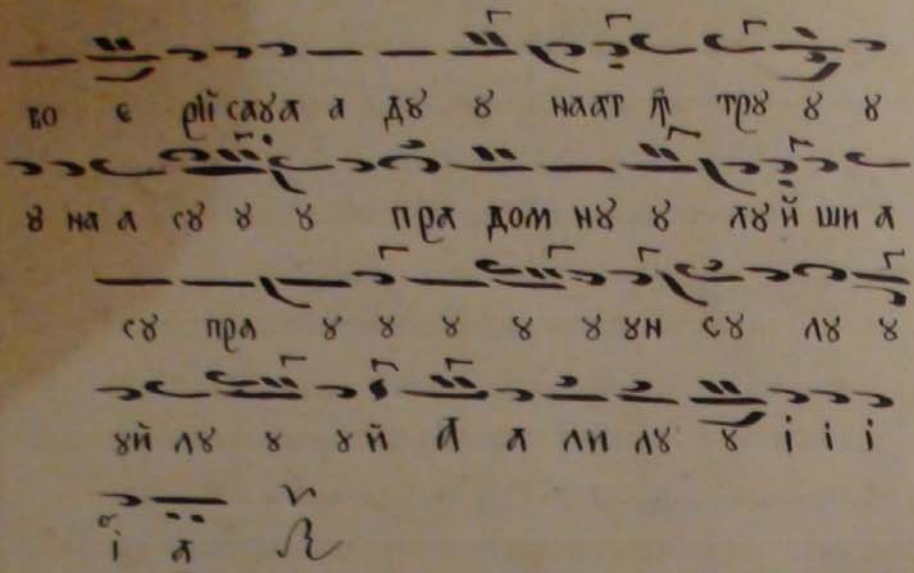 во є рїі саꙋа а дꙋ ꙋ наат трꙋ ꙋ ꙋ
ꙋ на а сꙋ ꙋ ꙋ пра дом нꙋ ꙋ лꙋй ши а
сꙋ пра ꙋ ꙋ ꙋ ꙋ ꙋ ꙋн сꙋ лꙋ ꙋ
ꙋй лꙋ ꙋ ꙋй а а ли лꙋ ꙋ і і і
і а